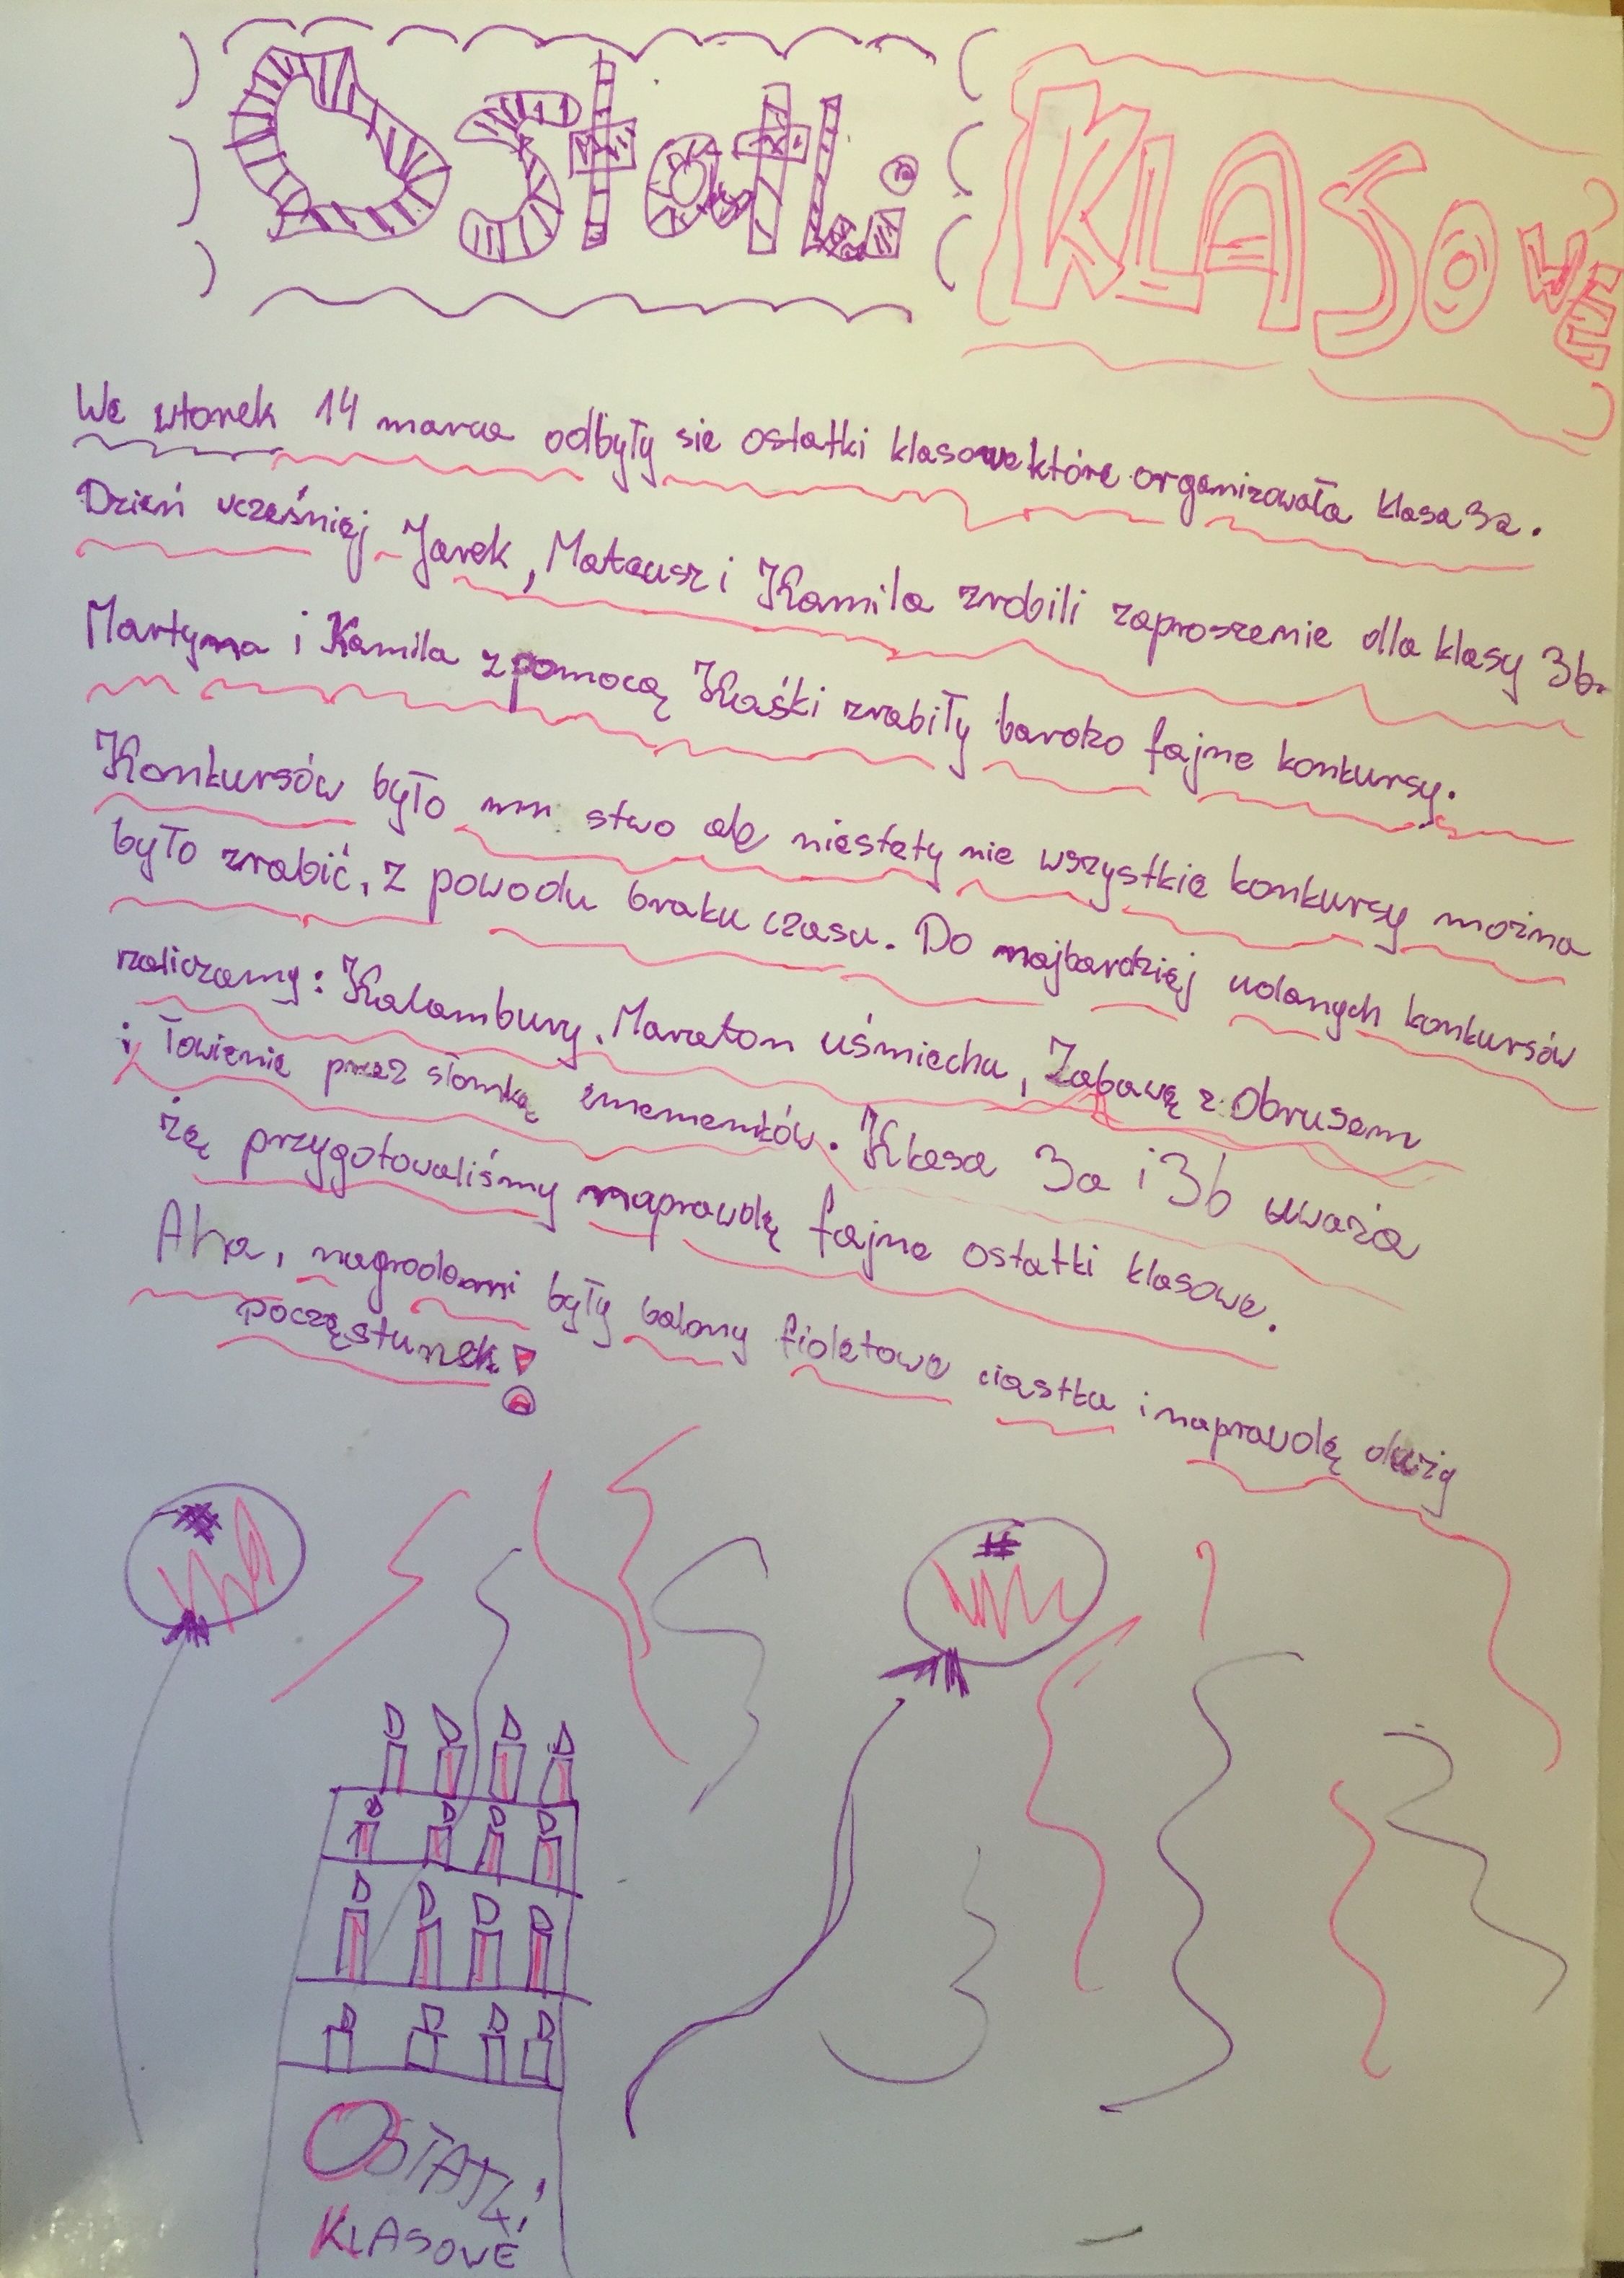 Ostatki KLASOWE
We wtorek 14 marca odbyły sie ostatki klasowe które organizowała klasa 3a.
Dzień wcześniej Jarek, Mateusz i Kamila zrobili zaproszenie dla klasy 3b.
Martyna i Kamila z pomocą Kaśki zrobiły bardzo fajne konkursy.
Konkursów było mn stwo ale niestety nie wszystkie konkursy można
było zrobić, z powodu braku czasu. Do najbardziej udanych konkursów
zaliczamy: Kalambury, Maraton uśmiechu, Zabawę z Obrusem
i łowienie przez słomkę Klasa 3a i 3b uważa
żę przygotowaliśmy naprawdę fajne ostatki klasowe.
Aha, nagrodami były balony fioletowe ciastka i naprawdę duży
poczęstunek!
OSTATKI
KLASOWE